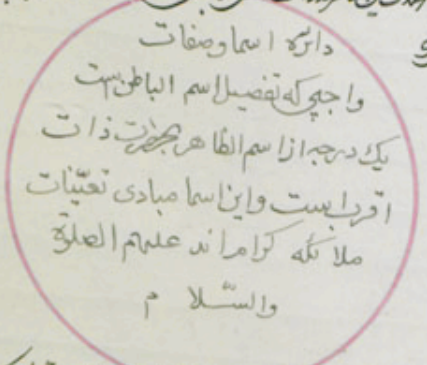 دائرہ اسما وصفات
واجبی کہ تفصیل اسم الباطن است
یک درجہ از اسم الظاهر بحضرت ذات
اقرب است واین اسما مبادی تعیّنات
ملائکہ کرام اند علیهم الصلوٰة
والسّلام